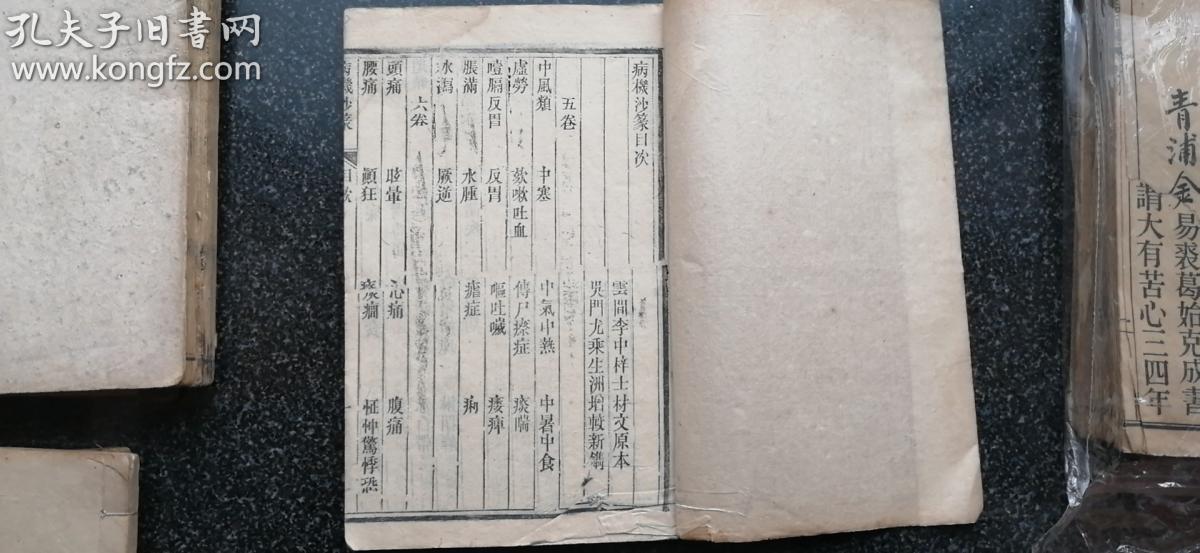 孔夫子旧书网
www.kongfz.com
青浦金易裘葛始克成書
請大有苦心三四年
病機沙篆目次
雲間李中梓士材父原本
吳門尤乘生洲增較新鐫
五卷
中風類 中寒 中氣中熱 中暑中食
虛勞 欬嗽吐血 傳尸瘵症 痰喘
噎膈反胃 反胃 嘔吐噦 痿痺
脹滿 水腫 瘧症 痢
水瀉 厥逆
六卷
頭痛 眩暈 心痛 腹痛
腰痛 顛狂 痰癎 怔忡驚悸恐
病機沙篆 目次 一